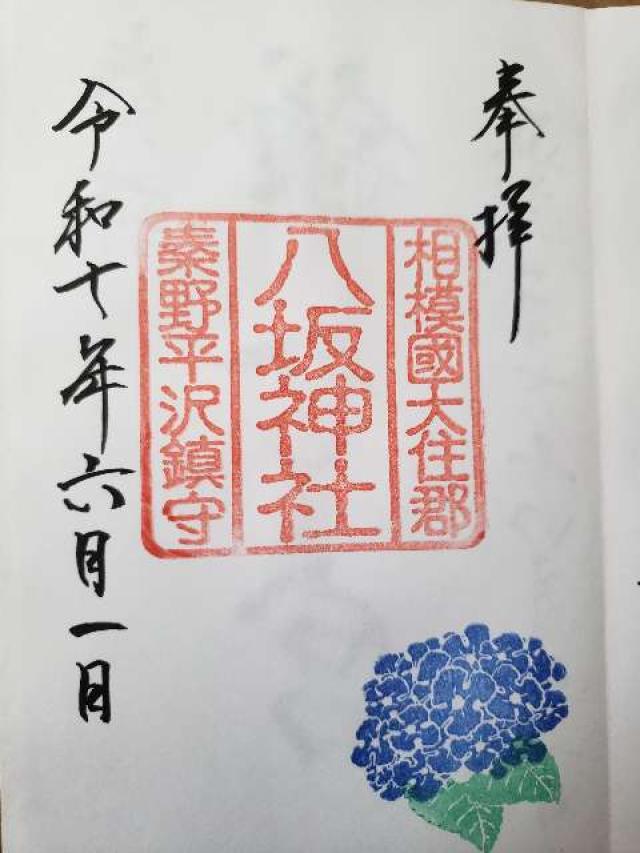 奉拝
相模國大住郡
八坂神社
秦野平沢鎮守
令和十年六月一日